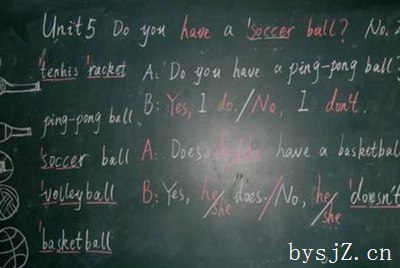 Unit 5 Do you have a 'soccer ball? No.
'tennis 'racket A: Do you have a ping-pong ball?
ping-pong ball B: Yes, I do. / No, I don't.
'soccer ball A: Does have a basketball
'volleyball B: Yes, he/she does. / No, he/she 'doesn't
'basketball
bysjZ.cn